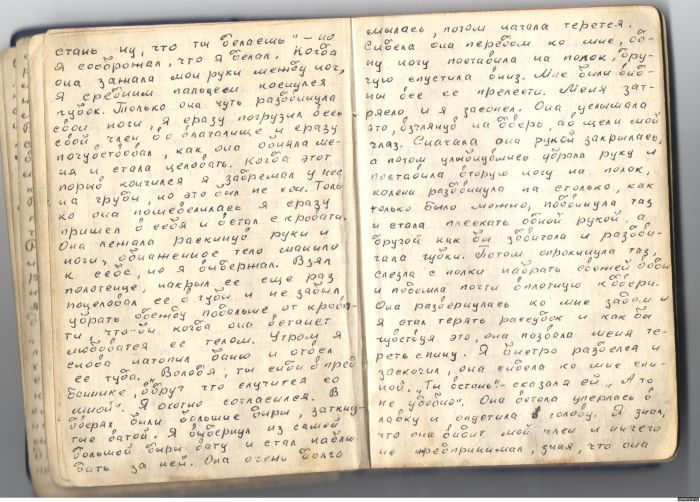 стань ну, что ты делаешь" – но
я сообразил, что я делал. Когда
она зажала мои руки между ног,
я средним пальцем коснулся
губок. Только она чуть раздвинула
свои ноги, я сразу погрузил весь
свой член во влагалище и сразу
почувствовал, как она обняла ме-
ня и стала целовать. Когда этот
порыв кончился я задремал у нее
на груди, но это был не сон. Толь-
ко она пошевелилась я сразу
пришел в себя и встал с кровати.
Она лежала раскинув руки и
ноги, обнаженное тело манило
к себе, но я выдержал. Взял
полотенце, накрыл ее еще раз
поцеловал ее в губы и не забыл
убрать одежду подальше от крова-
ти что-бы когда она встанет
любоватся ее телом. Утром я
снова натопил баню и отвел
ее туда. "Володя, ты сиди в пред
баннике, вдруг что случится со
мной". Я охотно согласился. В
дверях были большие дыры, заткну-
тые ватой. Я выдернул из самой
большой дыры вату и стал наблю-
дать за ней. Она очень долго
мылась, потом начала терется.
Сидела она передом ко мне, од-
ну ногу поставила на полок, дру-
гую спустила вниз. Мне были вид-
ны все ее прелести. Меня зат-
рясло и я засопел. Она услышала
это, взглянув на дверь, а в щели мой
глаз. Сначала она рукой закрылась,
а потом улыбнувшись убрала руку и
поставила вторую ногу на полок,
колени раздвинула на столько, как
только было можно, пододвинула таз
и стала плескать одной рукой, а
другой как бы здвигала и раздви-
гала губки. Потом опрокинула таз,
слезла с полки набрать свежей воды
и подошла почти вплотную к двери.
Она развернулась ко мне задом и
я стал терять рассудок и как бы
чувствуя это, она позвала меня те-
реть спину. Я быстро разделся и
заскочил, она сидела ко мне спи-
ной. "Ты встань" – сказал я ей, "А то
не удобно". Она встала уперлась в
лавку и опустила голову. Я знал,
что она видит мой член и ничего
не предпринимал, зная, что она